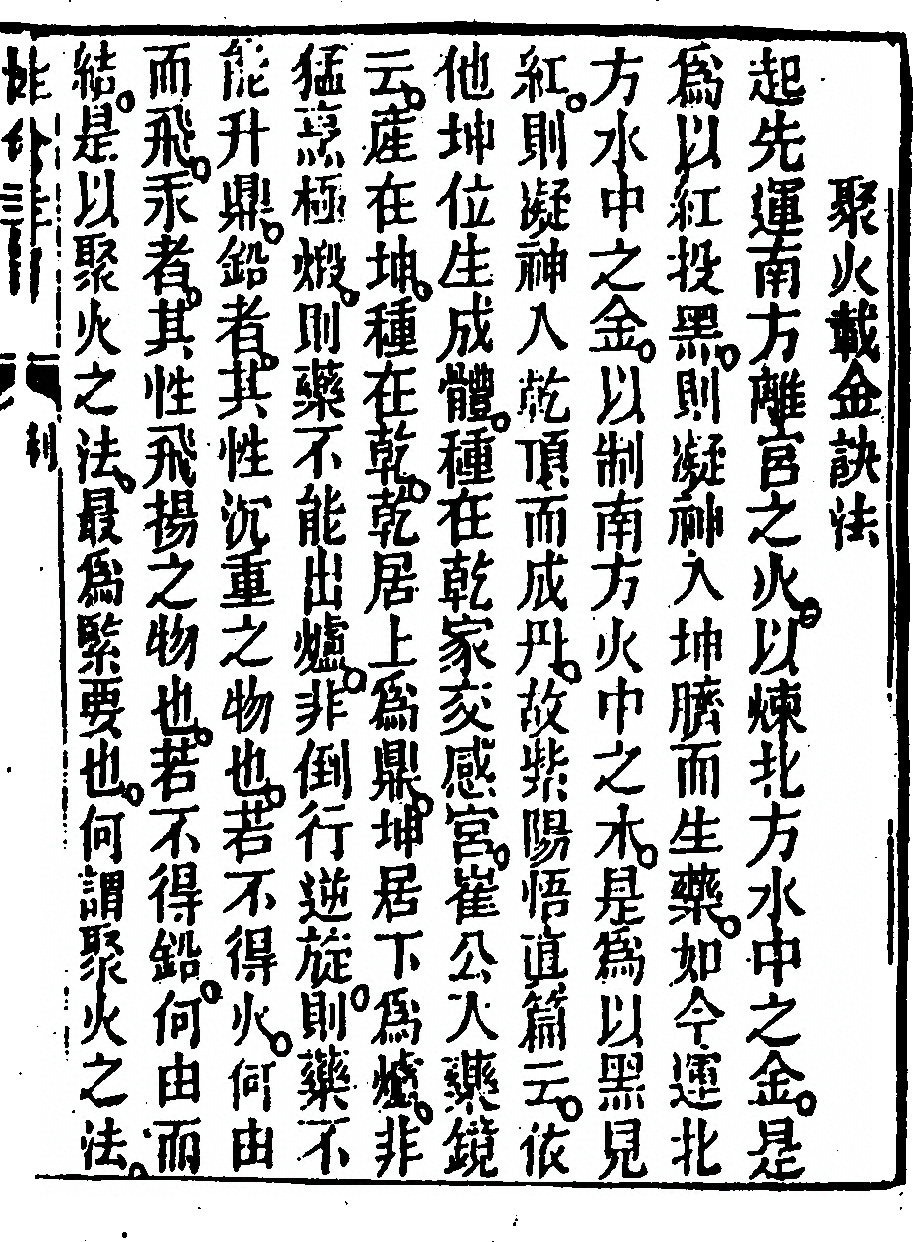 聚火載金訣法
起先運南方離宮之火以煉北方水中之金是
爲以紅投黑則凝神入坤臍而生藥如今運北
方水中之金以制南方火中之木是爲以黑見
紅則凝神入乾頂而成丹故紫陽悟眞篇云依
他坤位生成體種在乾家交感宮崔公入藥鏡
云產在坤種在乾乾居上爲鼎坤居下爲爐非
猛烹極煅則藥不能出爐非倒行逆旋則藥不
能升鼎鉛者其性沉重之物也若不得火何由
而飛汞者其性飛揚之物也若不得鉛何由而
結是以聚火之法最爲緊要也何謂聚火之法